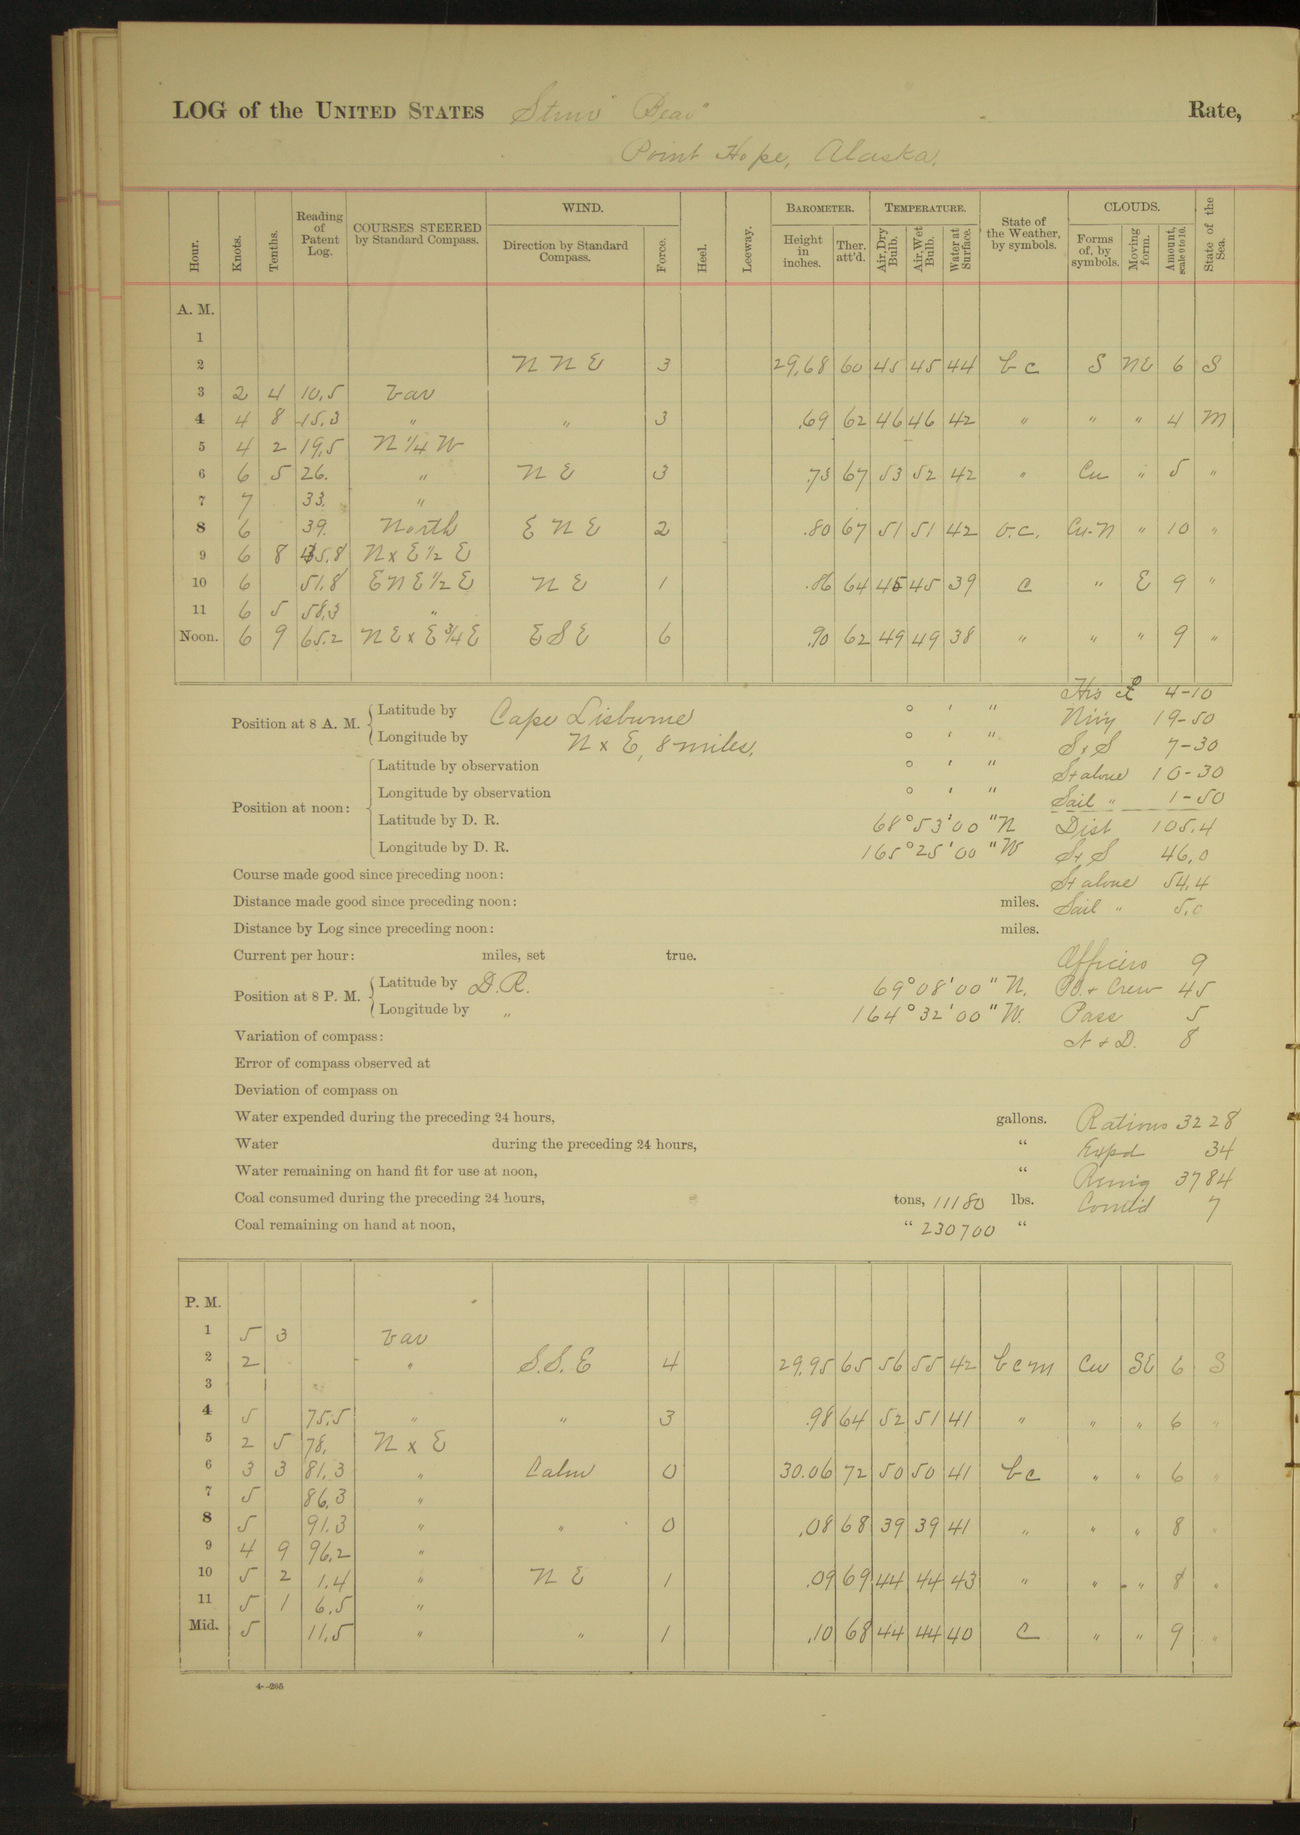 LOG of the UNITED STATES Stmr "Bear" Rate,
Point Hope, Alaska.
Hour. Knots. Tenths. Reading of Patent Log. COURSES STEERED by Standard Compass. WIND. Direction by Standard Compass. Force. Heel. Leeway. BAROMETER. Height in inches. Ther. att'd. TEMPERATURE. Air, Dry Bulb. Air, Wet Bulb. Water at Surface. State of the Weather, by symbols. CLOUDS. Forms of, by symbols. Moving form. Amount, scale 0 to 10. State of the Sea.
A. M.
1
2 N N E 3 29.68 60 45 45 44 bc S NE 6 S
3 2 4 10.5 var
4 4 8 15.3 " " 3 .69 62 46 46 42 " " " 4 M
5 4 2 19.5 N 1/4 W
6 6 5 26. " N E 3 .73 67 53 52 42 " Cu " 5 "
7 7 33. "
8 6 39. North E N E 2 .80 67 51 51 42 o.c. Cu-N " 10 "
9 6 8 45.8 N x E 1/2 E
10 6 51.8 ENE 1/2 E N E 1 .86 64 45 45 39 c " E 9 "
11 6 5 58.3 "
Noon. 6 9 65.2 NE x E 3/4 E E S E 6 .90 62 49 49 38 " " " 9 "
Hrs 4-10
Position at 8 A. M. Latitude by Cape Lisburne ° ' " 19-50
Longitude by N x E, 8 miles. ° ' " S & S 7-30
Position at noon: Latitude by observation ° ' " St alone 10-30
Longitude by observation ° ' " Sail " 1-50
Latitude by D. R. 68° 53' 00" N Dist 105.4
Longitude by D. R. 165° 25' 00" W S & S 46.0
Course made good since preceding noon: St alone 54.4
Distance made good since preceding noon: miles. Sail " 5.0
Distance by Log since preceding noon: miles.
Current per hour: miles, set true. Officers 9
Position at 8 P. M. Latitude by D.R. 69° 08' 00" N. P.O. & Crew 45
Longitude by " 164° 32' 00" W. Pass 5
Variation of compass: N & D. 8
Error of compass observed at
Deviation of compass on
Water expended during the preceding 24 hours, gallons. Rations 3228
Water during the preceding 24 hours, " Expd 34
Water remaining on hand fit for use at noon, " Remig 3784
Coal consumed during the preceding 24 hours, tons, 11180 lbs. Com'td 7
Coal remaining on hand at noon, " 230700 "
P. M.
1 5 3 var
2 2 " S.S.E 4 29.95 65 56 55 42 bcm Cu SE 6 S
3
4 5 75.5 " " 3 .98 64 52 51 41 " " " 6 "
5 2 5 78. N x E
6 3 3 81.3 " Calm 0 30.06 72 50 50 41 bc " " 6 "
7 5 86.3 "
8 5 91.3 " " 0 .08 68 39 39 41 " " " 8 "
9 4 9 96.2 "
10 5 2 1.4 " N E 1 .09 69 44 44 43 " " " 8 "
11 5 1 6.5 "
Mid. 5 11.5 " " 1 .10 68 44 44 40 c " " 9 "
4--265